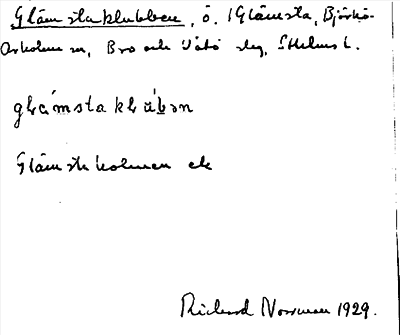 Glåmstaklubben, ö. i Glåmsta, Björkö-
Arholma sn, Bro och Vätö skg, Sthlms l.
glåmsta kl bən
Glåmstaholmen ek
Richard Norrman 1929.